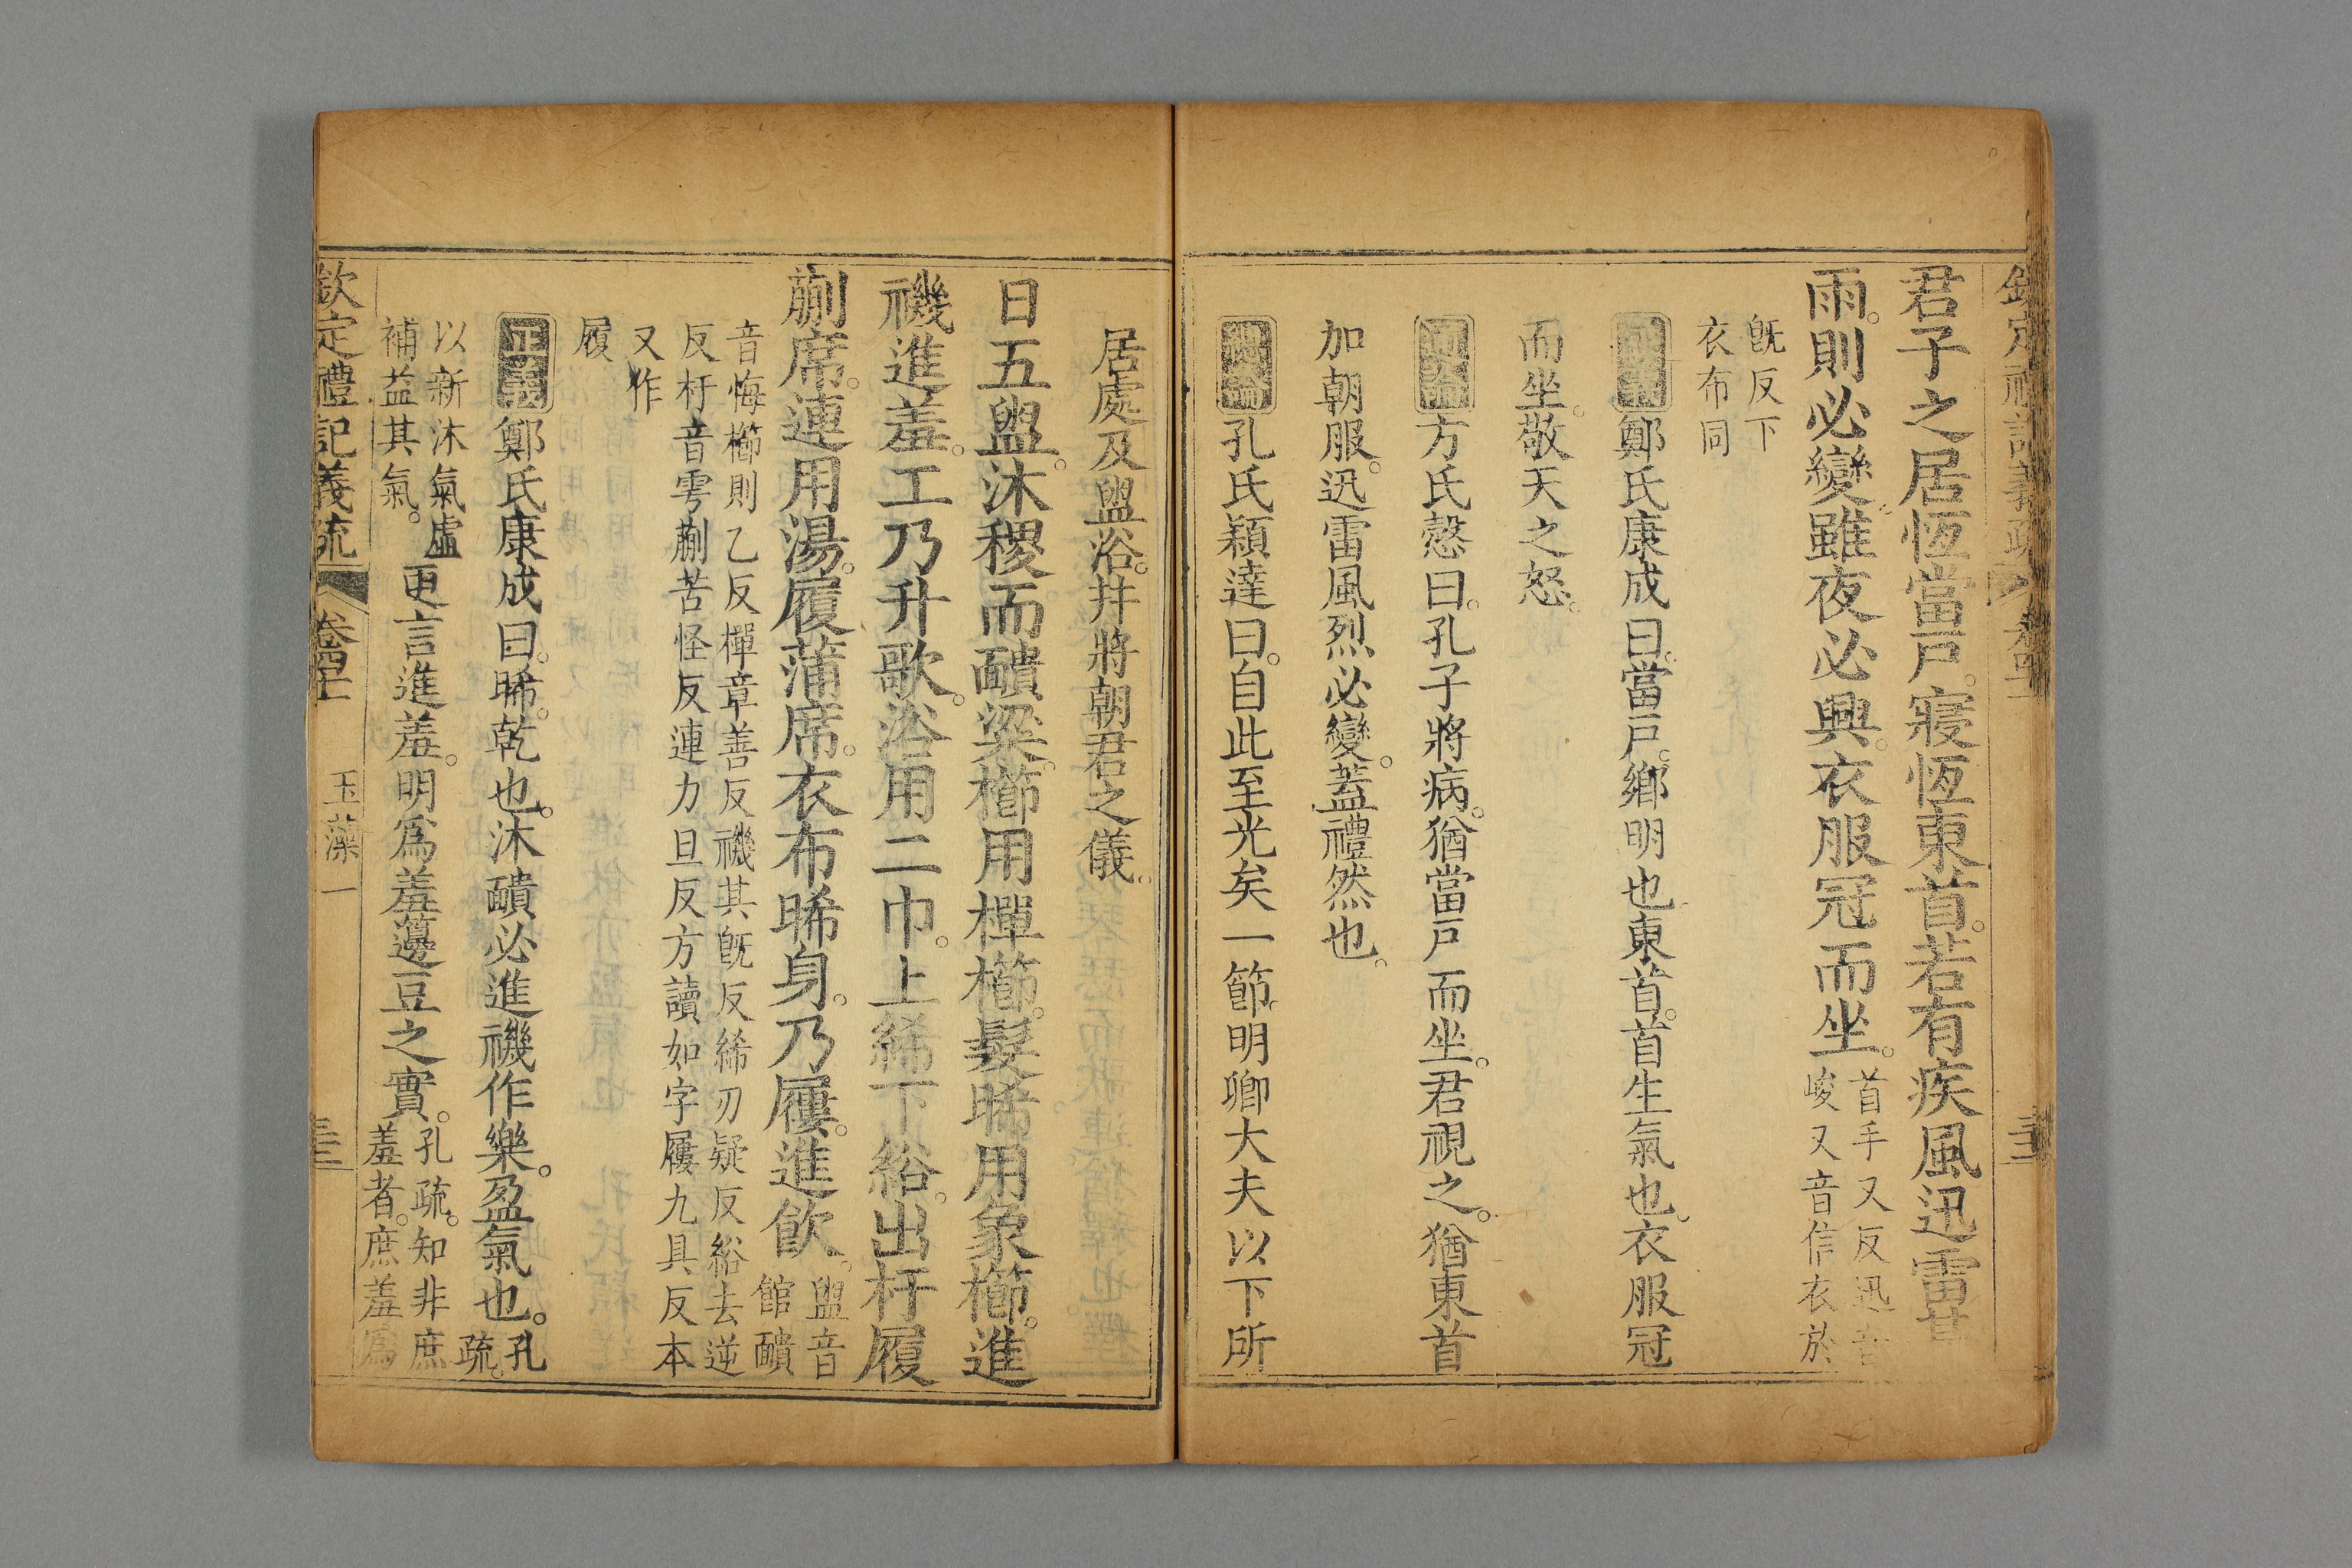 欽定禮記義疏 卷四十一 三十二
君子之居恆當戶。寢恆東首。若有疾風迅雷甚
雨。則必變。雖夜必興。衣服冠而坐。首手又反迅音
峻又音信衣於
旣反下
衣布同
正義鄭氏康成曰。當戶。鄉明也。東首。首生氣也。衣服冠
而坐。敬天之怒。
通論方氏慤曰。孔子將病。猶當戶而坐。君視之。猶東首
加朝服。迅雷風烈必變。蓋禮然也。
總論孔氏穎達曰。自此至光矣一節。明卿大夫以下所
居處及盥浴。幷將朝君之儀。
日五盥。沐稷而靧粱。櫛用樿櫛。髮晞用象櫛。進
禨進羞。工乃升歌。浴用二巾。上絺下綌。出杅。履
蒯席。連用湯。履蒲席。衣布晞身。乃屨。進飮。盥音
館靧
音悔櫛則乙反樿章善反禨其旣反絺刃疑反綌去逆
反杅音雩蒯苦怪反連力旦反方讀如字屨九具反本
又作
履
正義鄭氏康成曰。晞。乾也。沐靧必進禨作樂。盈氣也。孔
疏。
以新沐氣虛
補益其氣。更言進羞。明爲羞籩豆之實。孔疏。知非庶
羞者。庶羞爲
欽定禮記義疏 卷四十一 玉藻一 三十三